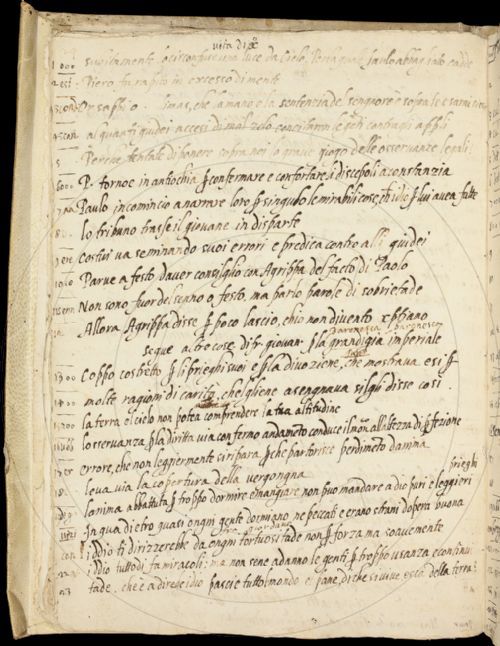 vita di
subitamente lo circonfuse una luce da cielo. Per la quale Saulo abbagliato cadde
Piero fu rapito in excesso di mente
Or sappi o che la mano e la sententia del signore è sopra te e sarai
alquanti giudei accesi di mal zelo concitarono le genti contra gli appli
Perche tentate di ponere sopra noi lo grave giogo delle osservanze legali:
P. tornoe in antiochia p confermare e confortare i discepoli a constanzia
Paulo incomincio a narrare loro p singulo le mirabili cose, ch idio p lui avea fatte
lo tribuno trasse il giovane in disparte
Costui va seminando suoi errori e predica contro alli giudei
Parve a festo d'aver consiglio con Agrippa del facto di Paolo
Non sono fuor del senno o festo, ma parlo parole di sobrietade
Allora Agrippa disse p poco lascio, ch'io non divento xpiano
baronesca baronesco
segue altre cose di fr. giovan. p la grandigia imperiale
Coppo costretto p li prieghi suoi e p la divozione, che mostrava e si p
molte ragioni di carità, che gliene asengnava sigli disse cosi
la terra el cielo non potea comprendere la tua altitudine
losservanza p la diritta via con fermo andamento conduce il mon. all'altezza di pfezione
errore, che non leggiermente si ripara p che partorisce perdimeto damina
prieghi
leva via la copertura della vergongna
lanima abbattuta p troppo dormire e mangiare non può mandare a dio puri e leggieri
In qua dietro quasi ongni gente dormiano ne peccati e erano strani dopera buona
iddio ti dirizzerebbe da ongni tortuositade non p forza ma soavemente
iddio tuttodì fa miracoli: ma non sene adanno le genti p troppo usanza e continui
tade. che è a dire e idio pascie tutto l mondo e i pane, di che si vive, escie della terra: